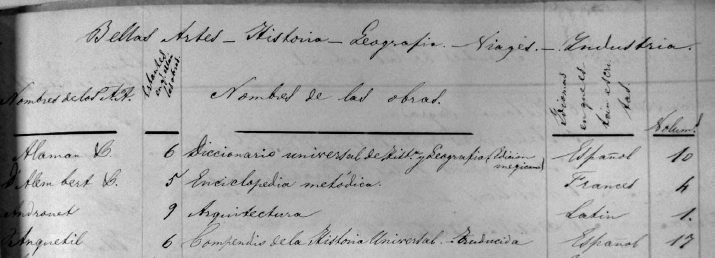 Bellas Artes - Historia - Geografia - Viages - Industria.
Nombres de los AA. Estantes en q.e están las obras. Nombres de las obras. Idiomas en que estan escritas Volum.s
Alaman L. 6 Diccionario universal de Hist.a y Geografia (Edicion megicana) Español 10
D'Alembert L. 5 Enciclopedia metódica. Frances 4
Andronet 9 Arquitectura Latin 1.
Anquetil 6 Compendio de la Historia Universal. Traducida Español 17